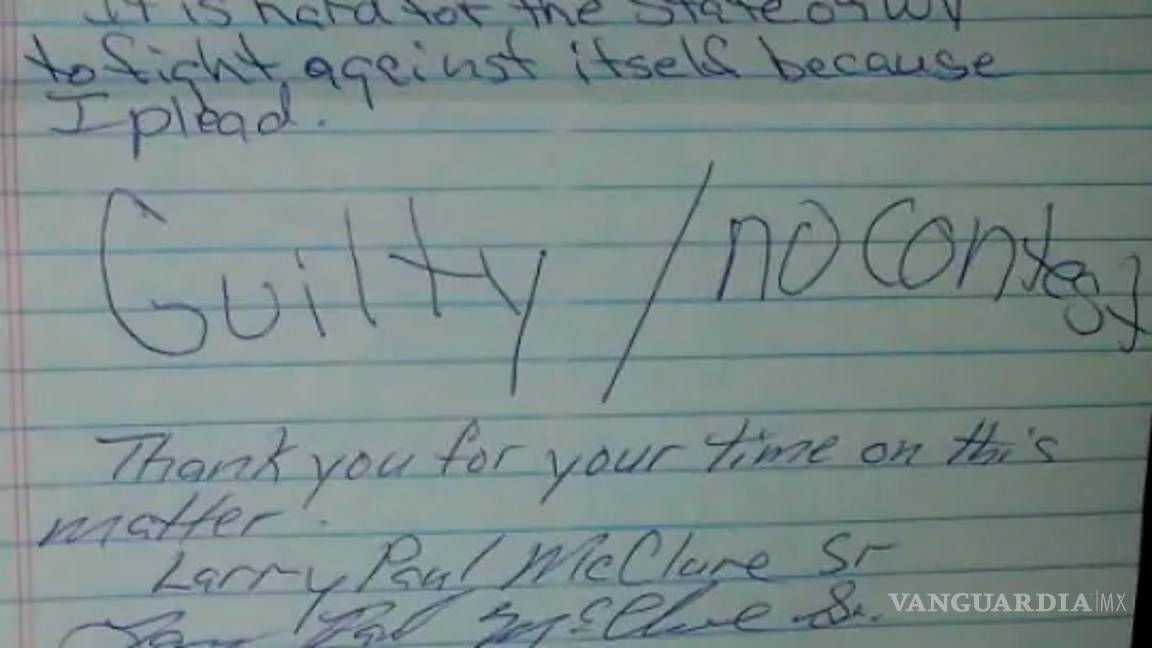 It is hard for the State of WV
to fight against itself because
I plead.
Guilty / no Contest
Thank you for your time on this
matter.
Larry Paul McClure Sr
Larry Paul McClure Sr.
VANGUARDIA|MX